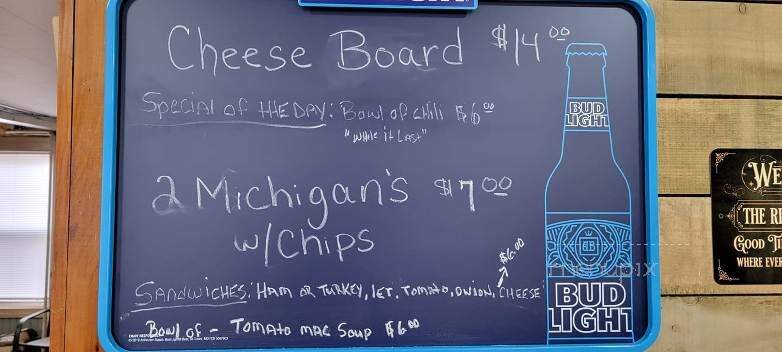 Cheese Board $14.00
Special of the Day: Bowl of chili $6.00
"while it Last"
2 Michigan's $7.00
w/Chips
$6.00
Sandwiches: Ham or Turkey, let. Tomato, onion, cheese
Bowl of - Tomato mac Soup $6.00
BUD
LIGHT
BUD
LIGHT
WE
THE RI
GOOD TI
WHERE EVER